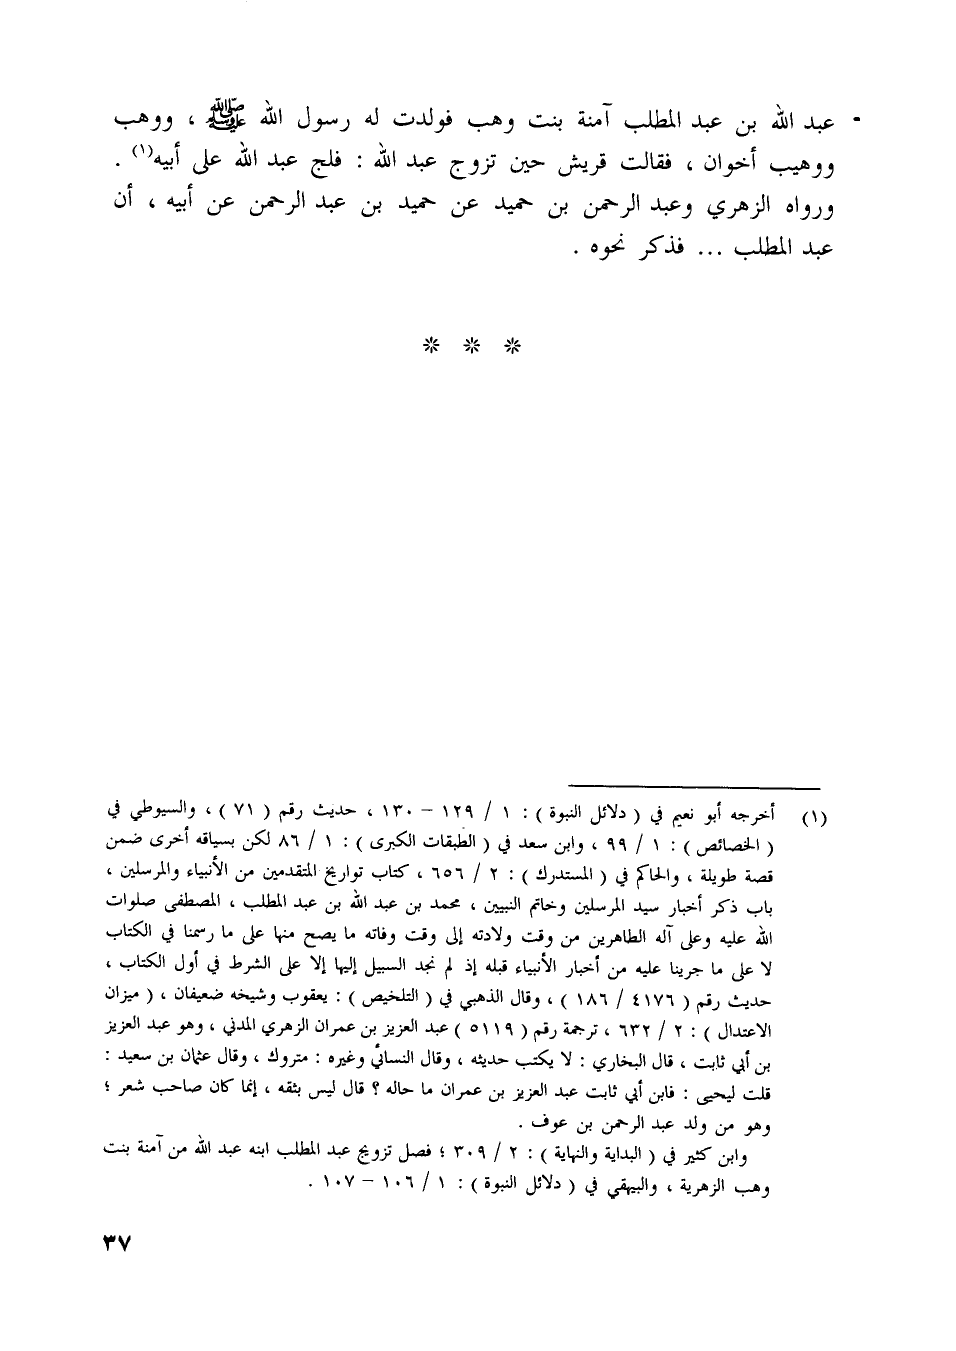 عبد الله بن عبد المطلب آمنة بنت وهب فولدت له رسول الله ﷺ ، ووهب
ووهيب أخوان ، فقالت قريش حين تزوج عبد الله : فلج عبد الله على أبيه(١) .
ورواه الزهري وعبد الرحمن بن حميد عن حميد بن عبد الرحمن عن أبيه ، أن
عبد المطلب ... فذكر نحوه .
* * *
(١) أخرجه أبو نعيم في ( دلائل النبوة ) : ١ / ١٢٩ – ١٣٠ ، حديث رقم ( ٧١ ) ، والسيوطي في
( الخصائص ) : ١ / ٩٩ ، وابن سعد في ( الطبقات الكبرى ) : ١ / ٨٦ لكن بسياقه أخرى ضمن
قصة طويلة ، والحاكم في ( المستدرك ) : ٢ / ٦٥٦ ، كتاب تواريخ المتقدمين من الأنبياء والمرسلين ،
باب ذكر أخبار سيد المرسلين وخاتم النبيين ، محمد بن عبد الله بن عبد المطلب ، المصطفى صلوات
الله عليه وعلى آله الطاهرين من وقت ولادته إلى وقت وفاته ما يصح منها على ما رسمنا في الكتاب
لا على ما جرينا عليه من أخبار الأنبياء قبله إذ لم نجد السبيل إليها إلا على الشرط في أول الكتاب ،
حديث رقم ( ٤١٧٦ / ١٨٦ ) ، وقال الذهبي في ( التلخيص ) : يعقوب وشيخه ضعيفان ، ( ميزان
الاعتدال ) : ٢ / ٦٣٢ ، ترجمة رقم ( ٥١١٩ ) عبد العزيز بن عمران الزهري المدني ، وهو عبد العزيز
بن أبي ثابت ، قال البخاري : لا يكتب حديثه ، وقال النسائي وغيره : متروك ، وقال عثمان بن سعيد :
قلت ليحيى : فابن أبي ثابت عبد العزيز بن عمران ما حاله ؟ قال ليس بثقه ، إنما كان صاحب شعر ؛
وهو من ولد عبد الرحمن بن عوف .
وابن كثير في ( البداية والنهاية ) : ٢ / ٣٠٩ ؛ فصل تزويج عبد المطلب ابنه عبد الله من آمنة بنت
وهب الزهرية ، والبيهقي في ( دلائل النبوة ) : ١ / ١٠٦ – ١٠٧ .
٣٧